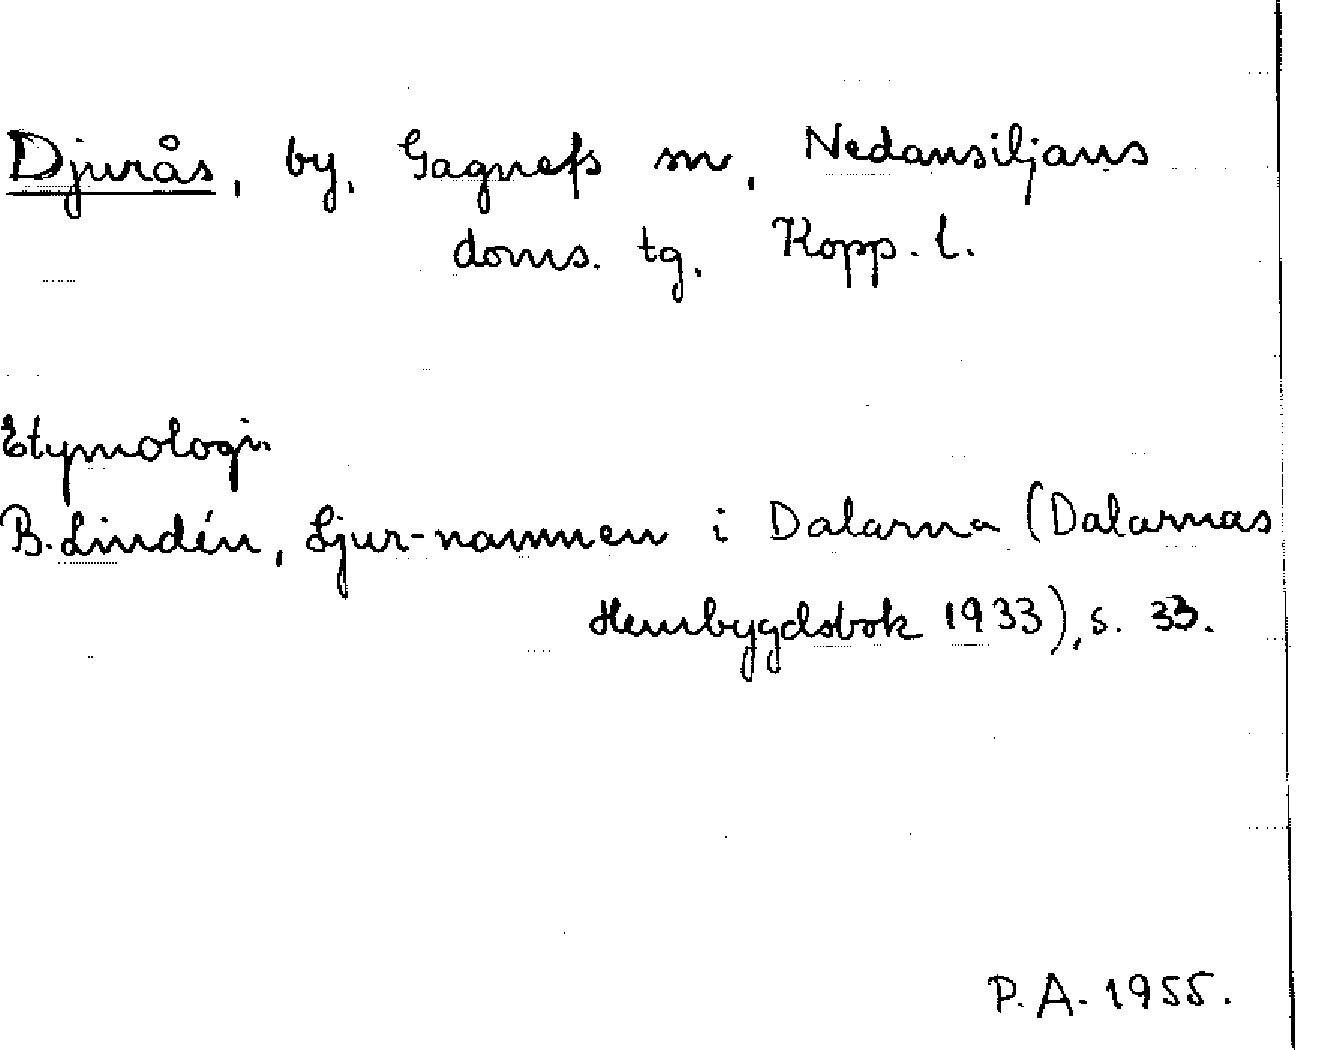 Djurås, by, Gagnefs sn, Nedansiljans
doms. tg. Kopp. l.
Etymologi.
B. Lindén, Ljur-namnen i Dalarna (Dalarnas
Hembygdsbok 1933), s. 33.
P. A. 1955.